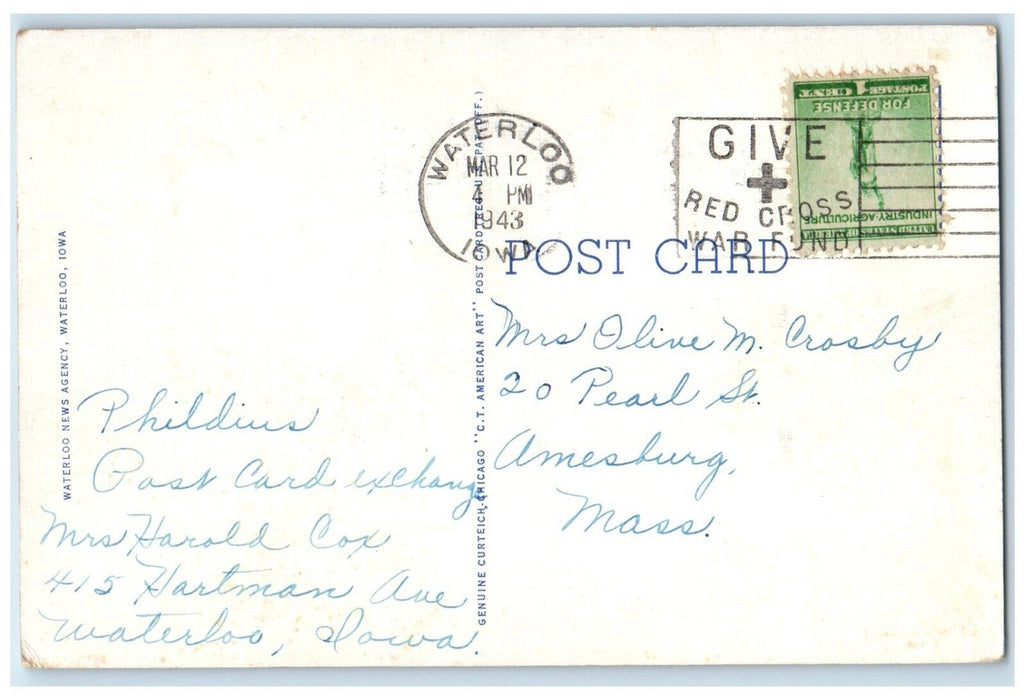 WATERLOO
MAR 12
4 PM
1943
IOWA
GIVE
RED CROSS
WAR FUND
POSTAGE 1 CENT
FOR DEFENSE
INDUSTRY-AGRICULTURE
UNITED STATES OF AMERICA
POST CARD
WATERLOO NEWS AGENCY, WATERLOO, IOWA
GENUINE CURTEICH-CHICAGO "C.T. AMERICAN ART" POST CARD (REG. U.S. PAT. OFF.)
Phildius
Post Card exchange
Mrs Harold Cox
415 Hartman Ave
Waterloo, Iowa.
Mrs Olive M. Crosby
20 Pearl St.
Amesburg,
Mass.